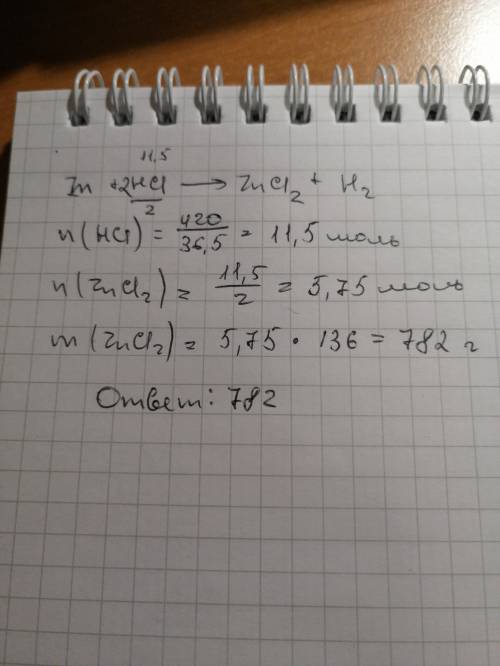 11,5
Zn + 2HCl → ZnCl₂ + H₂
2
n(HCl) = 420/36,5 = 11,5 моль
n(ZnCl₂) = 11,5/2 = 5,75 моль
m(ZnCl₂) = 5,75 · 136 = 782 г
Ответ: 782